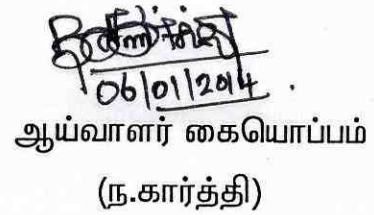 06/01/2014
ஆய்வாளர் கையொப்பம்
(ந.கார்த்தி)